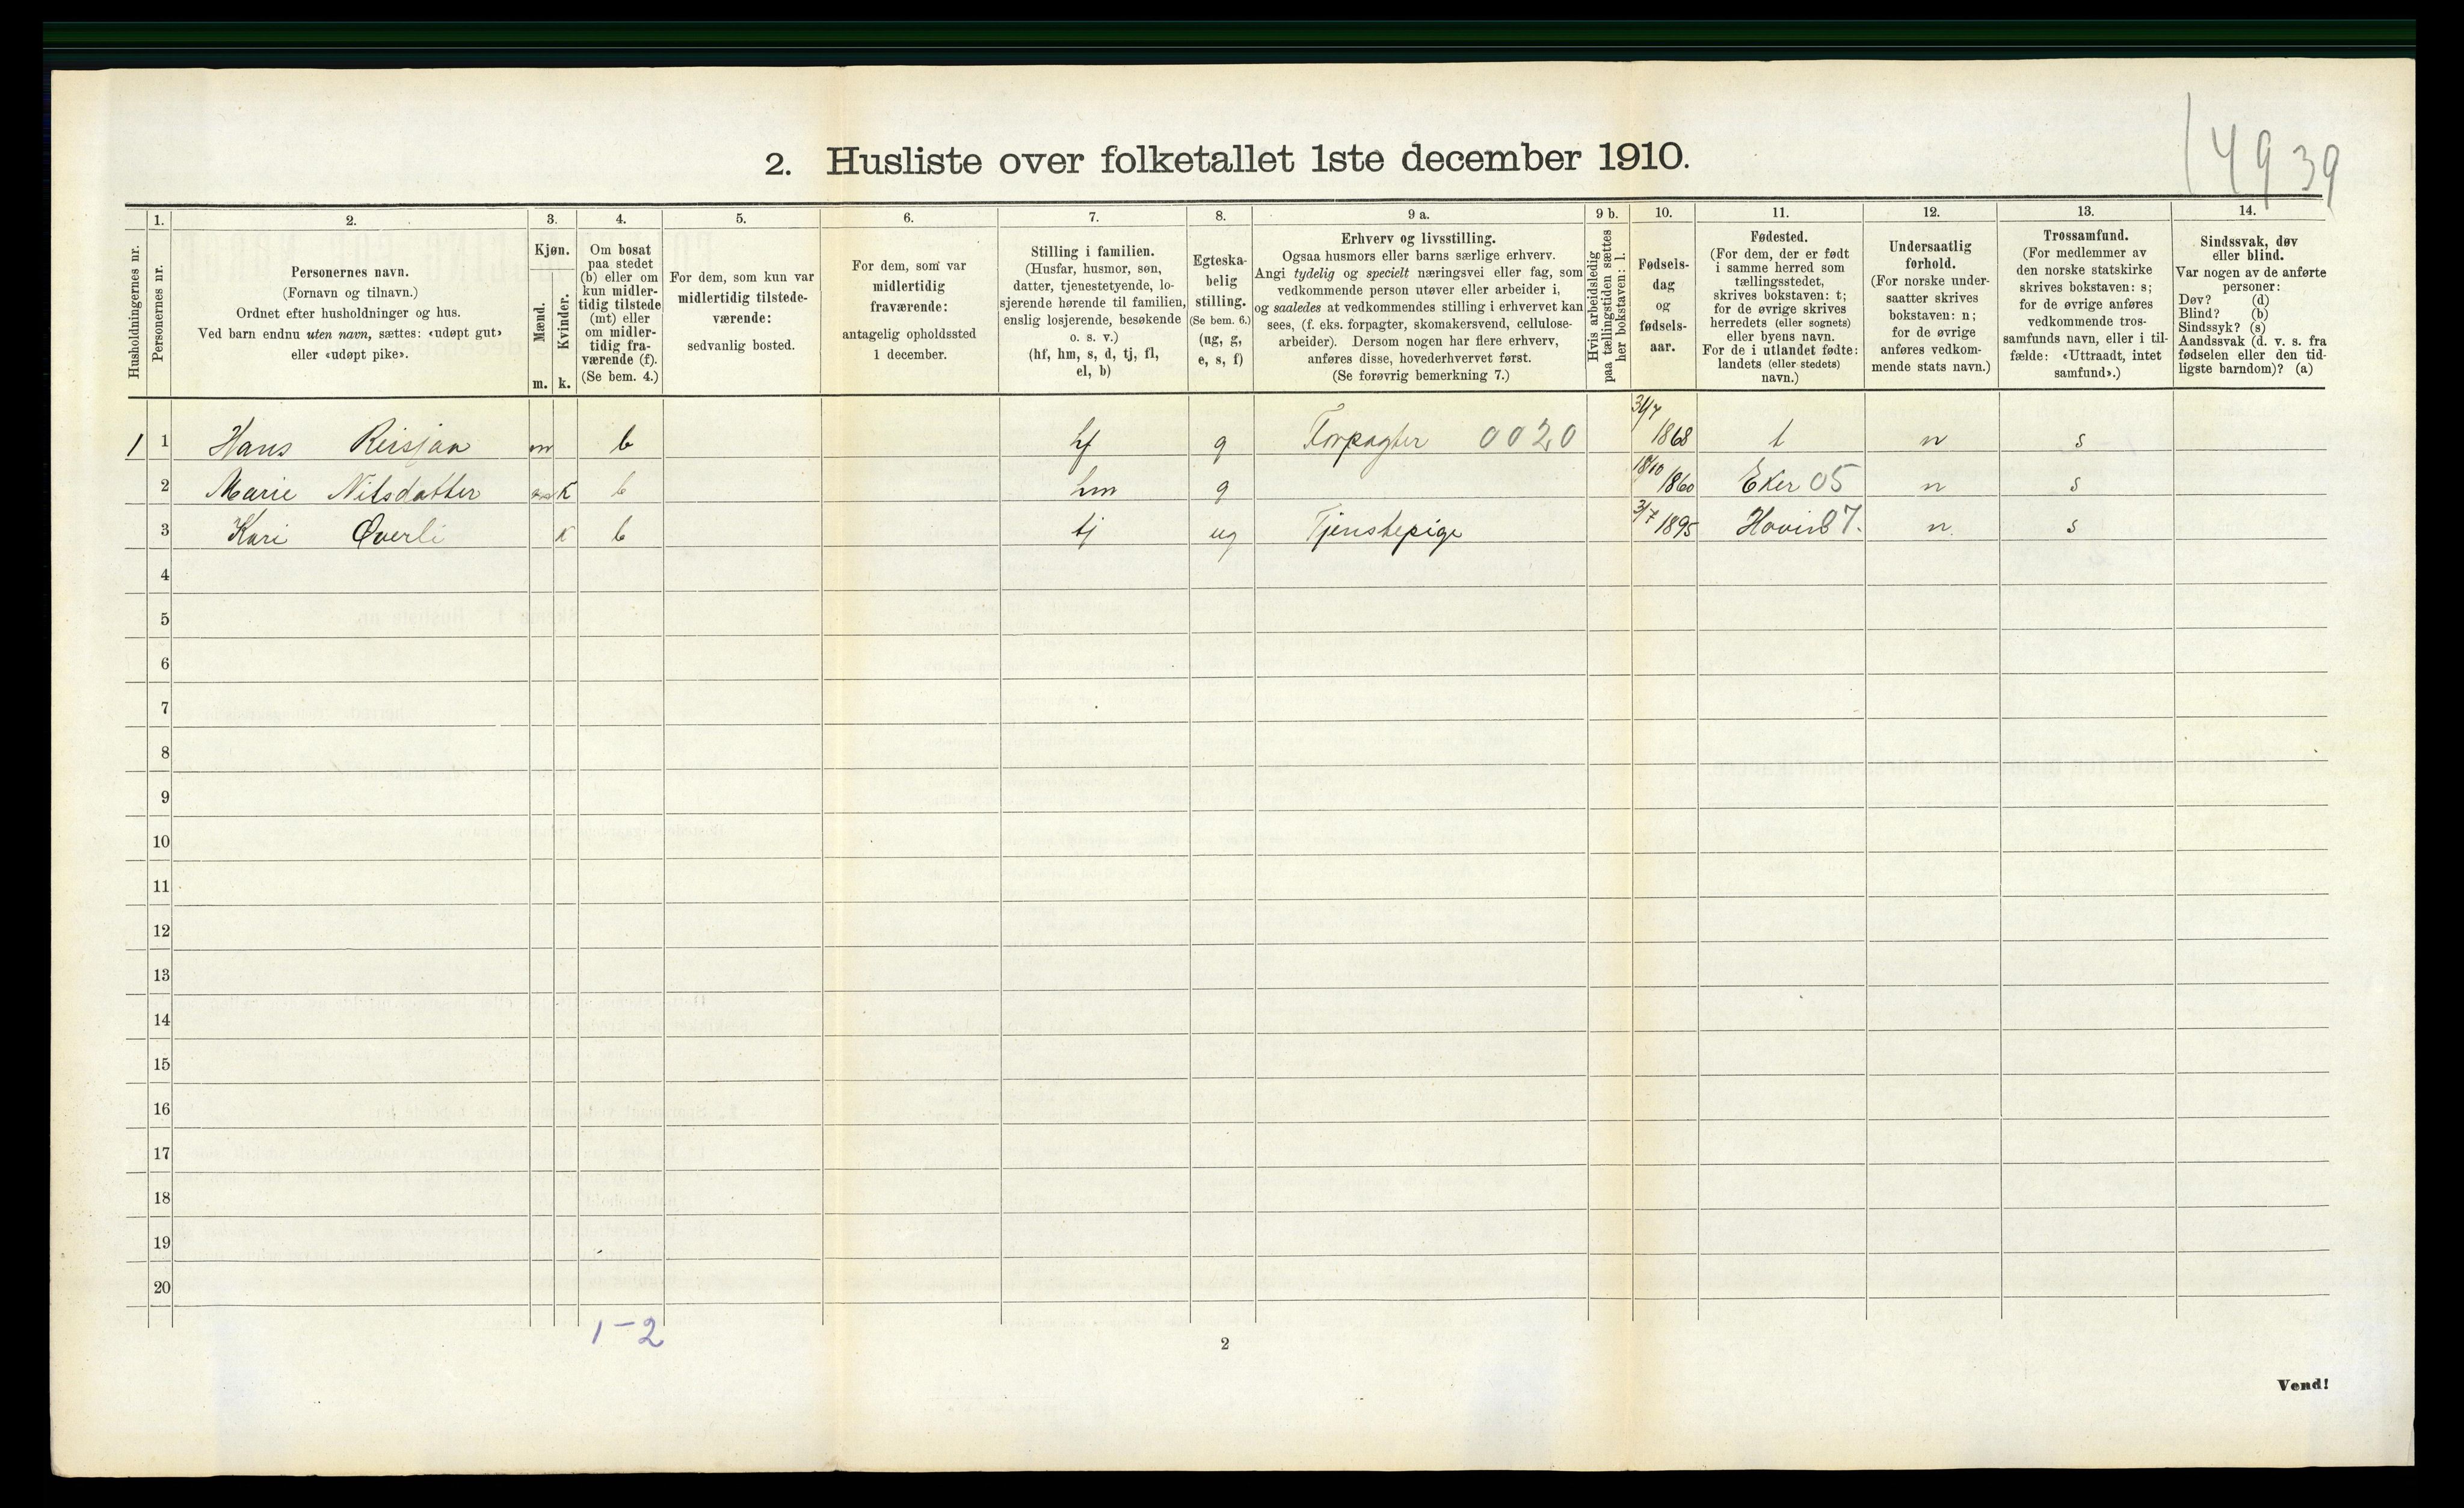 14939
2. Husliste over folketallet 1ste december 1910.
Husholdningernes nr.
1.
Personernes nr.
2.
Personernes navn.
(Fornavn og tilnavn.)
Ordnet efter husholdninger og hus.
Ved barn endnu uten navn, sættes: «udøpt gut»
eller «udøpt pike».
3.
Kjøn.
Mænd.
Kvinder.
m. k.
4.
Om bosat
paa stedet
(b) eller om
kun midler-
tidig tilstede
(mt) eller
om midler-
tidig fra-
værende (f).
(Se bem. 4.)
5.
For dem, som kun var
midlertidig tilstede-
værende:
sedvanlig bosted.
6.
For dem, som var
midlertidig
fraværende:
antagelig opholdssted
1 december.
7.
Stilling i familien.
(Husfar, husmor, søn,
datter, tjenestetyende, lo-
sjerende hørende til familien,
enslig losjerende, besøkende
o. s. v.)
(hf, hm, s, d, tj, fl,
el, b)
8.
Egteska-
belig
stilling.
(Se bem. 6.)
(ug, g,
e, s, f)
9 a.
Erhverv og livsstilling.
Ogsaa husmors eller barns særlige erhverv.
Angi tydelig og specielt næringsvei eller fag, som
vedkommende person utøver eller arbeider i,
og saaledes at vedkommendes stilling i erhvervet kan
sees, (f. eks. forpagter, skomakersvend, cellulose-
arbeider). Dersom nogen har flere erhverv,
anføres disse, hovederhvervet først.
(Se forøvrig bemerkning 7.)
9 b.
Hvis arbeidsledig
paa tællingstiden sættes
her bokstaven: l.
10.
Fødsels-
dag
og
fødsels-
aar.
11.
Fødested.
(For dem, der er født
i samme herred som
tællingsstedet,
skrives bokstaven: t;
for de øvrige skrives
herredets (eller sognets)
eller byens navn.
For de i utlandet fødte:
landets (eller stedets)
navn.)
12.
Undersaatlig
forhold.
(For norske under-
saatter skrives
bokstaven: n;
for de øvrige
anføres vedkom-
mende stats navn.)
13.
Trossamfund.
(For medlemmer av
den norske statskirke
skrives bokstaven: s;
for de øvrige anføres
vedkommende tros-
samfunds navn, eller i til-
fælde: «Uttraadt, intet
samfund».)
14.
Sindssvak, døv
eller blind.
Var nogen av de anførte
personer:
Døv? (d)
Blind? (b)
Sindssyk? (s)
Aandssvak (d. v. s. fra
fødselen eller den tid-
ligste barndom)? (a)
1 1 Hans Reisjaa m b hf g Forpagter 0020 31/7 1868 t n s
2 Marie Nilsdatter k b hm g 18/10 1860 Eker 05 n s
3 Kari Øverli k b tj ug Tjenstepige 3/7 1895 Hovin 07. n. s
4
5
6
7
8
9
10
11
12
13
14
15
16
17
18
19
20
1-2
2
Vend!